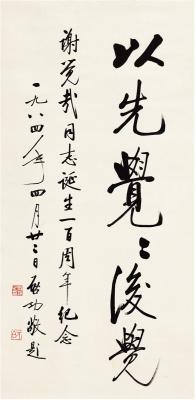 以先覺〻後覺
謝覺哉同志誕生一百周年紀念
一九八四年四月廿二日啟功敬題